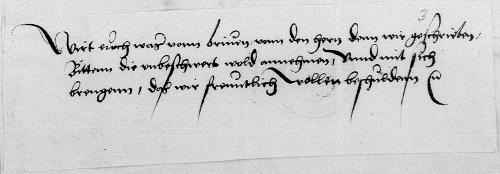 Wirt euch was vonn brieuen, von den hern denn wir geschrieben,
Bittenn die unbeschwert wold annehmen, Unnd mit sich
brengenn, das wir freuntlich wollen beschuldenn